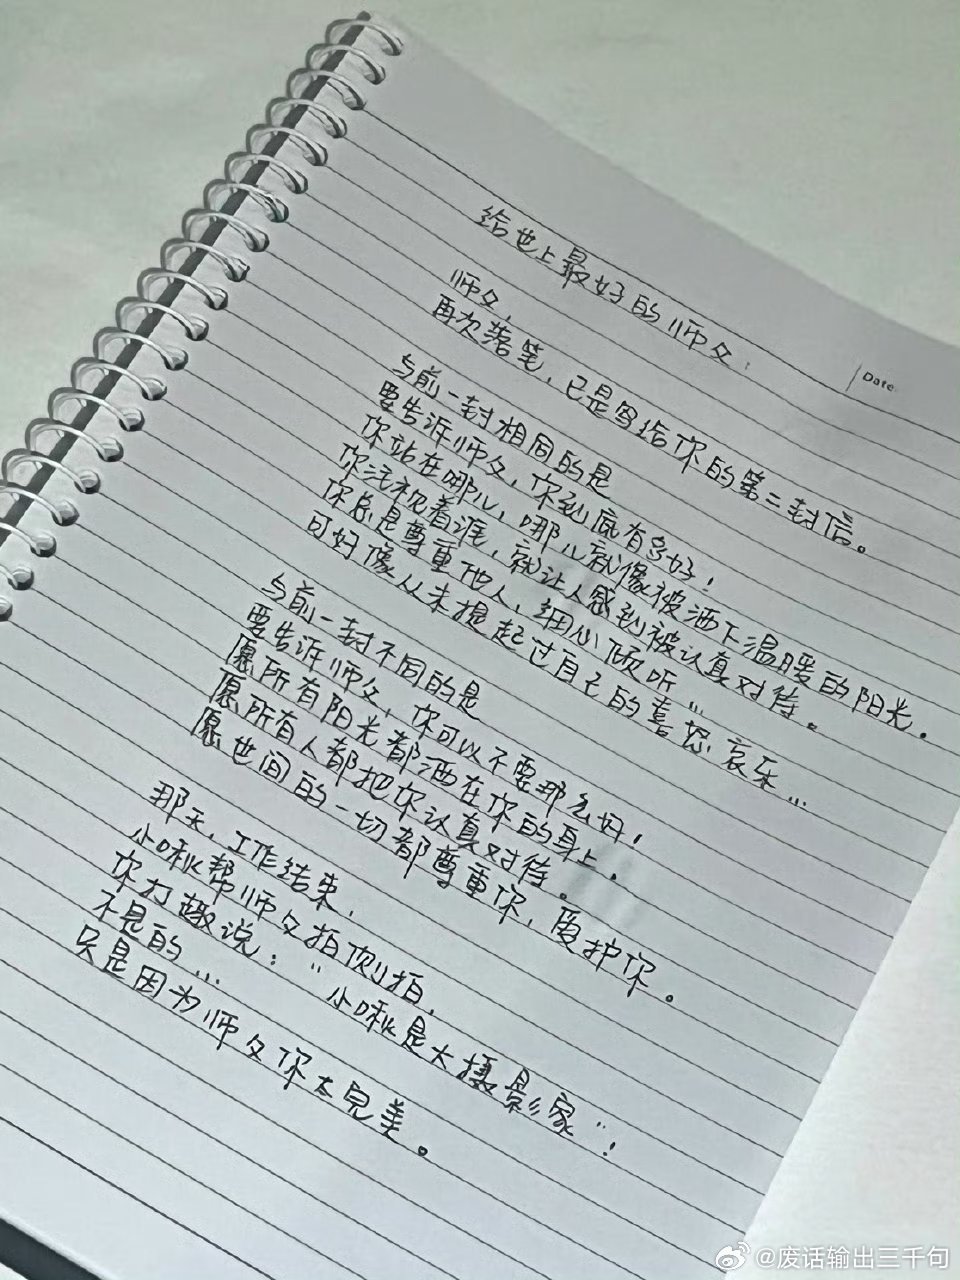 给世上最好的师父：
Date
师父，
再次落笔，已是写给你的第二封信。
与前一封相同的是
要告诉师父，你到底有多好！
你站在哪儿，哪儿就像被洒下温暖的阳光.
你注视着谁，就让人感到被认真对待。
你总是尊重他人，细心倾听…
可好像从未提起过自己的喜怒哀乐…
与前一封不同的是
要告诉师父，你可以不要那么好！
愿所有阳光都洒在你的身上，
愿所有人都把你认真对待。
愿世间的一切都尊重你，爱护你。
那天，工作结束，
小啾帮师父拍侧拍，
你打趣说：“小啾是大摄影家”！
不是的…
只是因为师父你太完美。
@废话输出三千句